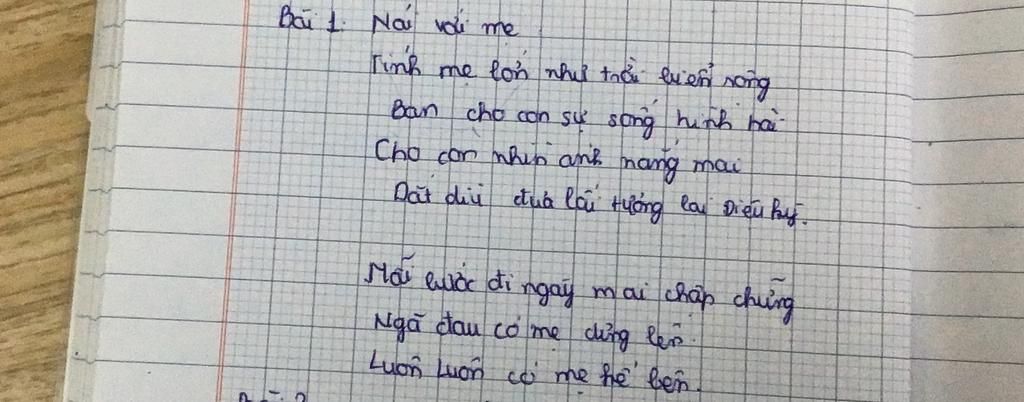 Bài 1. Nói với mẹ
Tình mẹ lớn như trời biển rộng
Ban cho con sự sống hình hài
Cho con nhìn ánh nắng mai
Dắt dìu đưa lối tương lai Diệu kỳ.
Mỗi bước đi ngày mai chập chững
Ngã đau có mẹ dựng lên.
Luôn Luôn có mẹ kế bên.